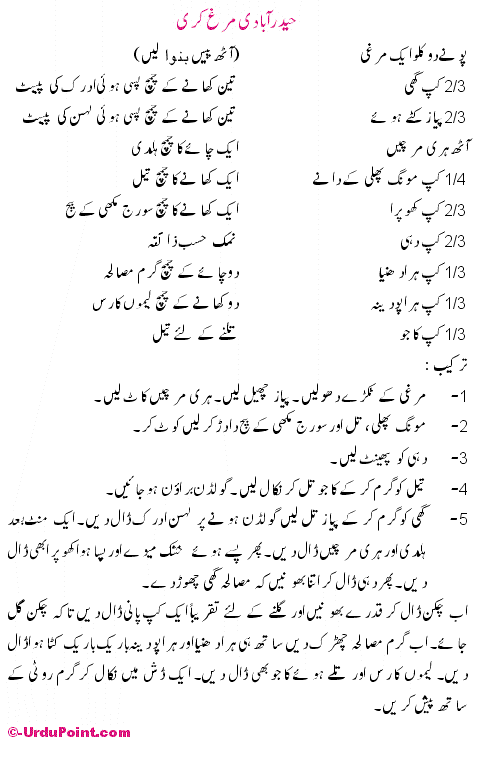 حیدرآبادی مرغ کری
پونے دو کلو ایک مرغی (آٹھ پیس بنوا لیں)
2/3 کپ گھی تین کھانے کے چمچ پسی ہوئی ادرک کی پیسٹ
2/3 پیاز کٹے ہوئے تین کھانے کے چمچ پسی ہوئی لہسن کی پیسٹ
آٹھ ہری مرچیں ایک چائے کا چمچ ہلدی
1/4 کپ مونگ پھلی کے دانے ایک کھانے کا چمچ تیل
2/3 کپ کھوپرا ایک کھانے کا چمچ سورج مکھی کے بیج
2/3 کپ دہی نمک حسب ذائقہ
1/3 کپ ہرا دھنیا دو چائے کے چمچ گرم مصالحہ
1/3 کپ ہرا پودینہ دو کھانے کے چمچ لیموں کا رس
1/3 کپ کاجو تلنے کے لئے تیل
ترکیب :
1- مرغی کے ٹکڑے دھو لیں۔ پیاز چھیل لیں۔ ہری مرچیں کاٹ لیں۔
2- مونگ پھلی، تل اور سورج مکھی کے بیج دادڑ کر لیں کوٹ کر۔
3- دہی کو پھینٹ لیں۔
4- تیل کو گرم کر کے کاجو تل کر نکال لیں۔ گولڈن براؤن ہو جائیں۔
5- گھی کو گرم کر کے پیاز تل لیں گولڈن ہونے پر لہسن ادرک ڈال دیں۔ ایک منٹ بعد
ہلدی اور ہری مرچیں ڈال دیں۔ پھر پسے ہوئے خشک میوے اور پسا ہوا کھوپرا بھی ڈال
دیں۔ پھر دہی ڈال کر اتنا بھونیں کہ مصالحہ گھی چھوڑ دے۔
اب چکن ڈال کر قدرے بھونیں اور گلنے کے لئے تقریباً ایک کپ پانی ڈال دیں تاکہ چکن گل
جائے۔ اب گرم مصالحہ چھڑک دیں ساتھ ہی ہرا دھنیا اور ہرا پودینہ باریک باریک کٹا ہوا ڈال
دیں۔ لیموں کا رس اور تلے ہوئے کاجو بھی ڈال دیں۔ ایک ڈش میں نکال کر گرم روٹی کے
ساتھ پیش کریں۔
©-UrduPoint.com